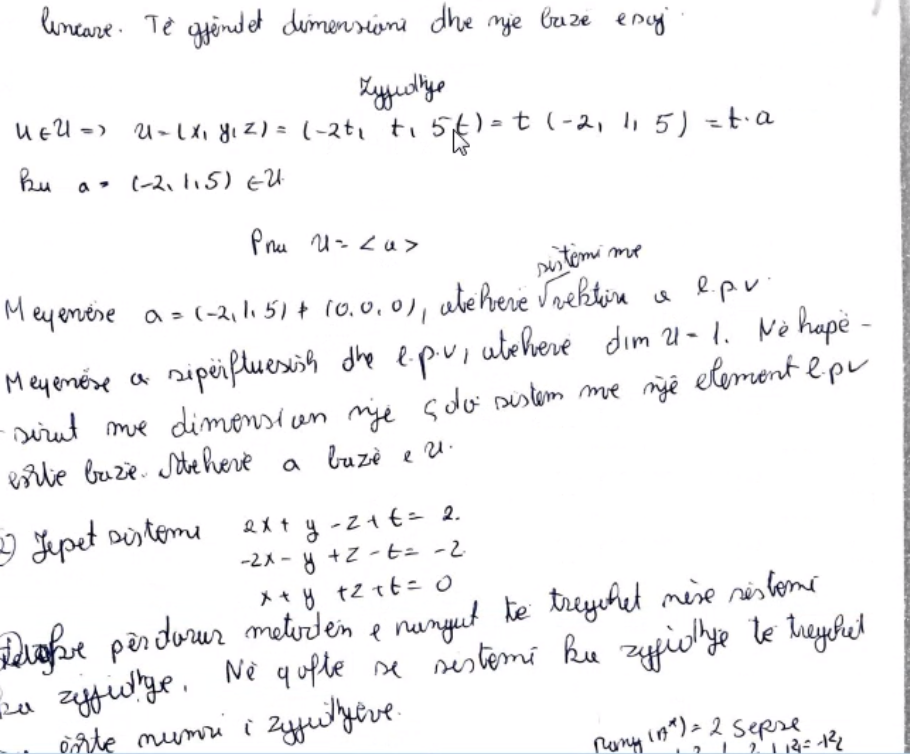 lineare. Të gjendet dimensioni dhe një bazë e saj.
Zgjidhje
u ∈ U => u = (x, y, z) = (-2t, t, 5t) = t (-2, 1, 5) = t·a
ku a = (-2, 1, 5) ∈ U
Pra U = <a>
sistemi me
Meqenëse a = (-2, 1, 5) ≠ (0, 0, 0), atëherë √ vektor a l.p.v.
Meqenëse a sipërfluesish dhe l.p.v, atëherë dim U = 1. Në hapë-
sirat me dimension një çdo sistem me një element l.p.v
është bazë. Atëherë a bazë e U.
2) Jepet sistemi 2x + y - z + t = 2.
-2x - y + z - t = -2
x + y + z + t = 0
përdorur metodën e rangut të tregohet nëse sistemi
ka zgjidhje. Në qoftë se sistemi ka zgjidhje të tregohet
është numri i zgjidhjeve.
rang (A*) = 2 sepse